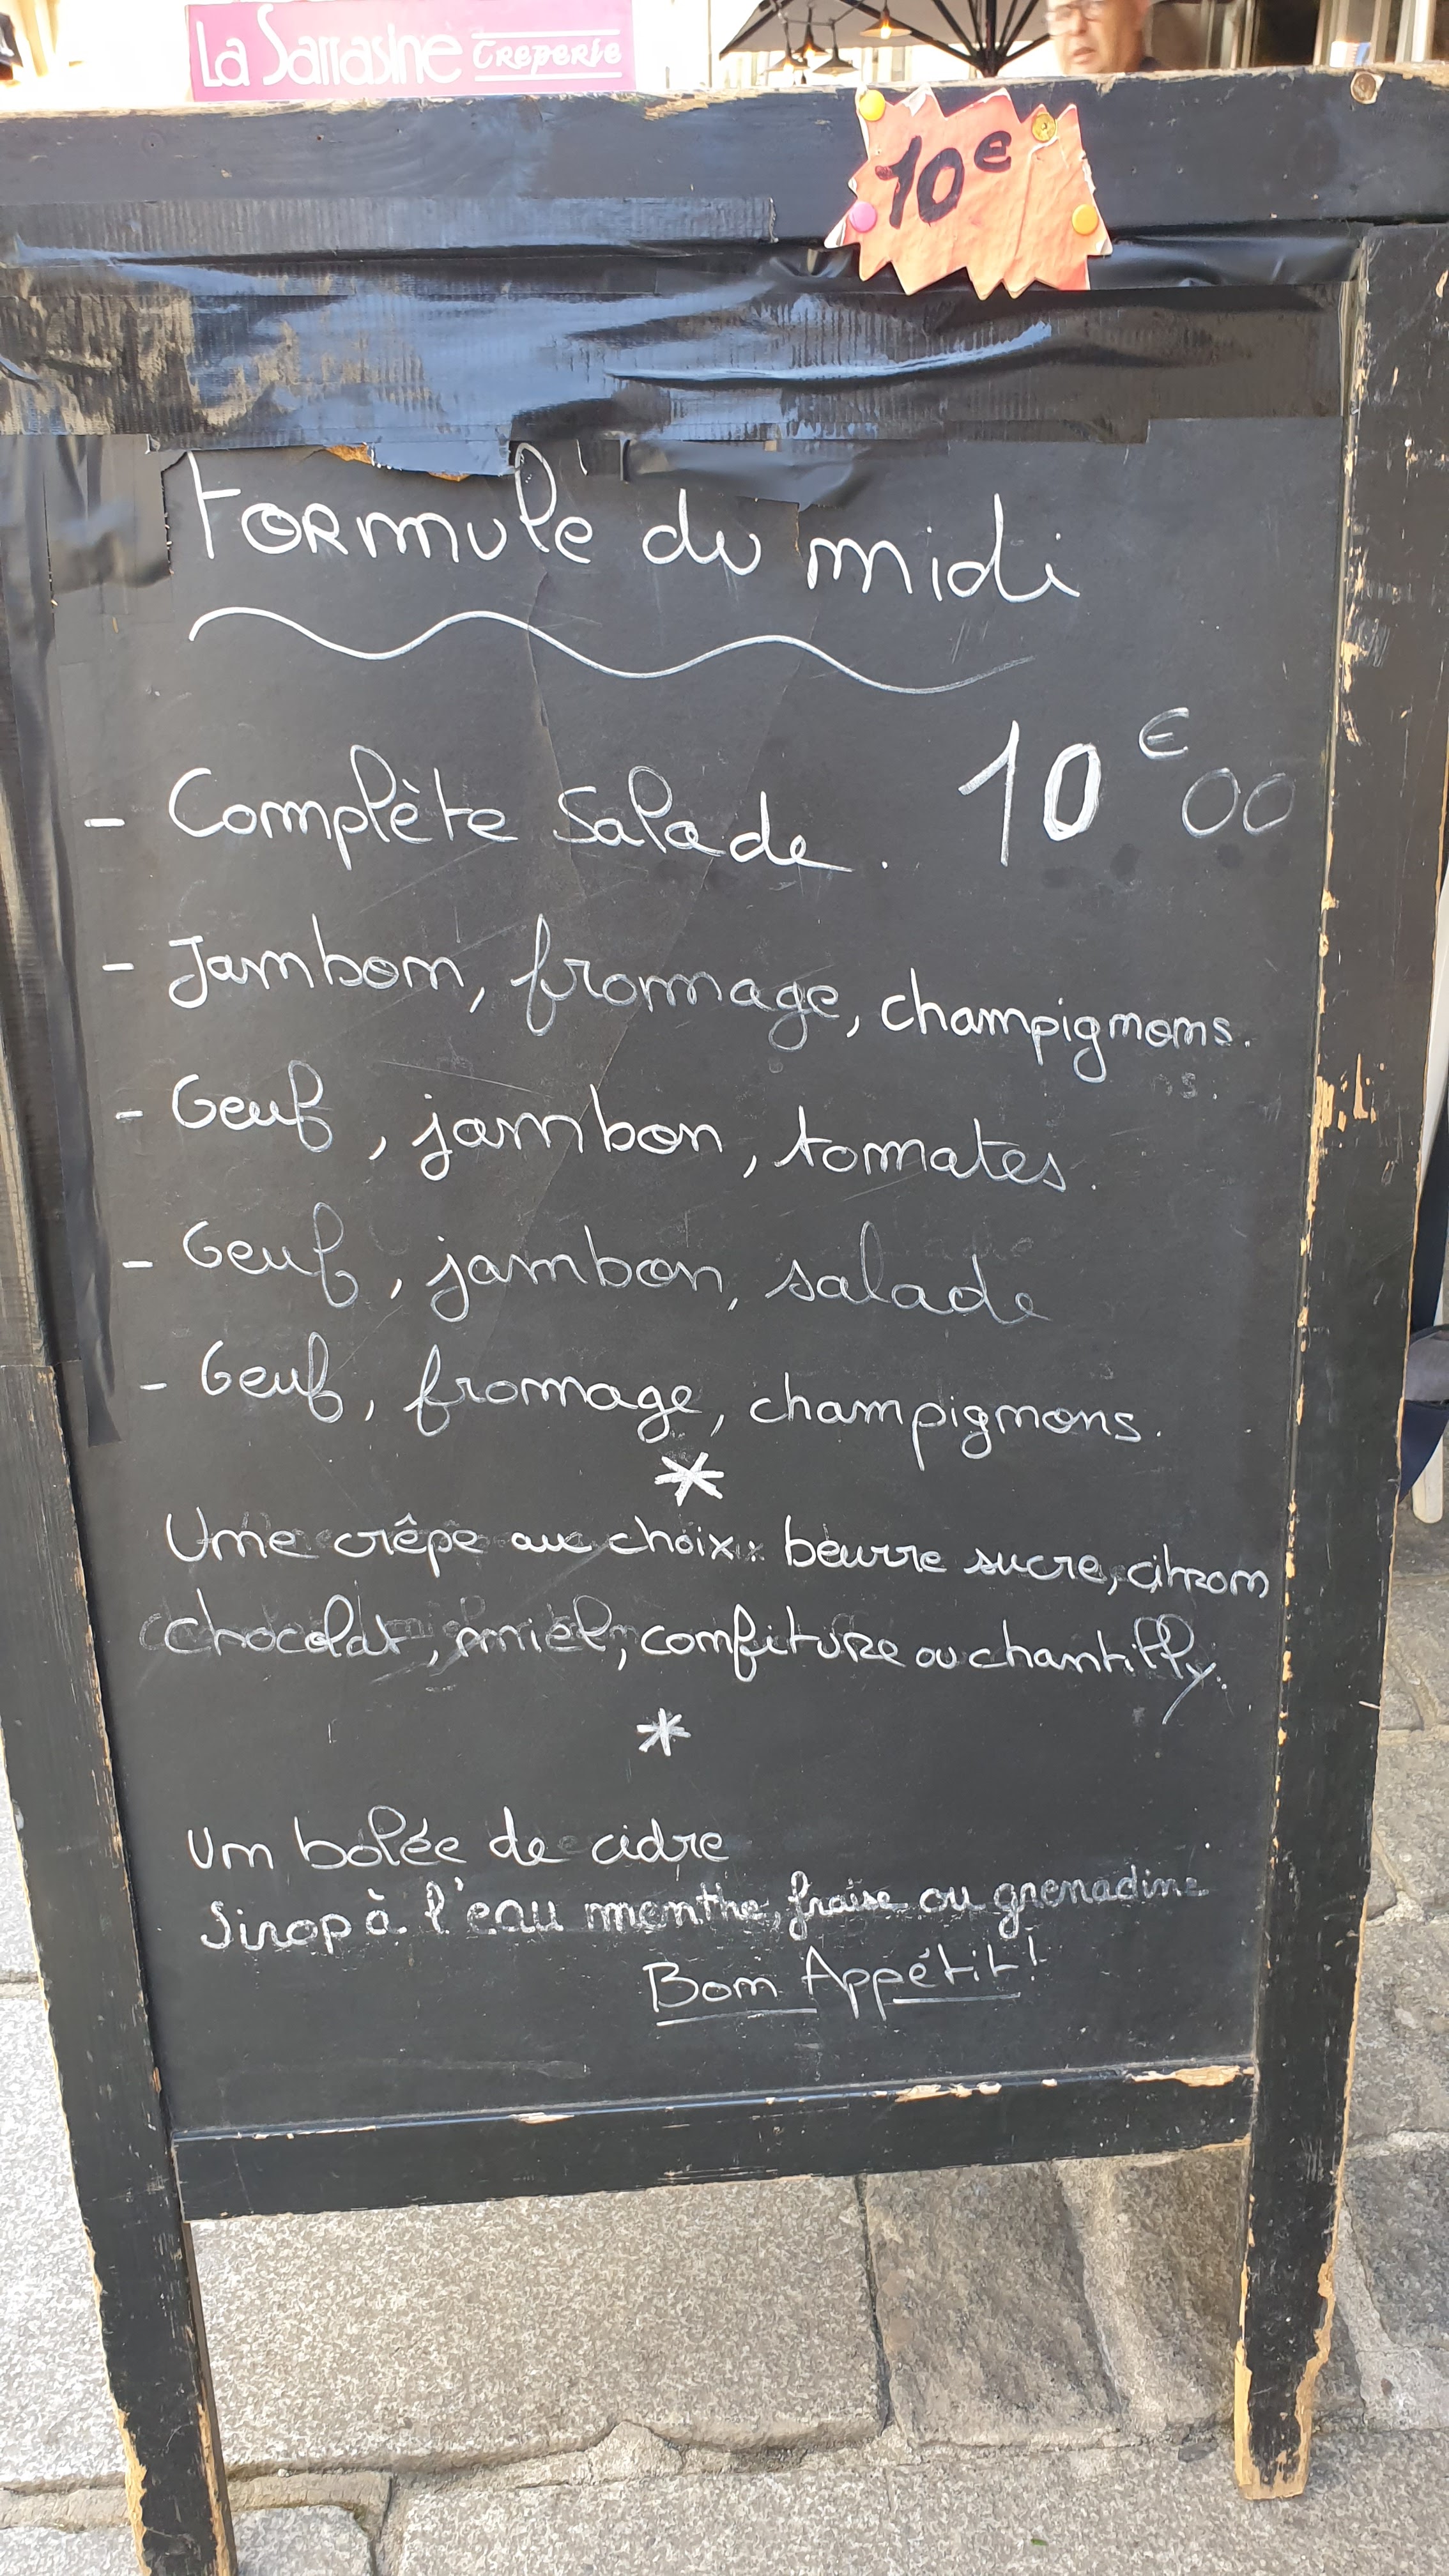 La Sarrasine Crêperie
10€
Formule du midi
- Complète Salade. 10€00
- Jambon, fromage, champignons.
- Oeuf, jambon, tomates.
- Oeuf, jambon, salade
- Oeuf, fromage, champignons.
*
Une crêpe au choix: beurre sucre, citron
chocolat, miel, confiture ou chantilly.
*
un bolée de cidre
Sirop à l'eau menthe, fraise ou grenadine
Bon Appétit!